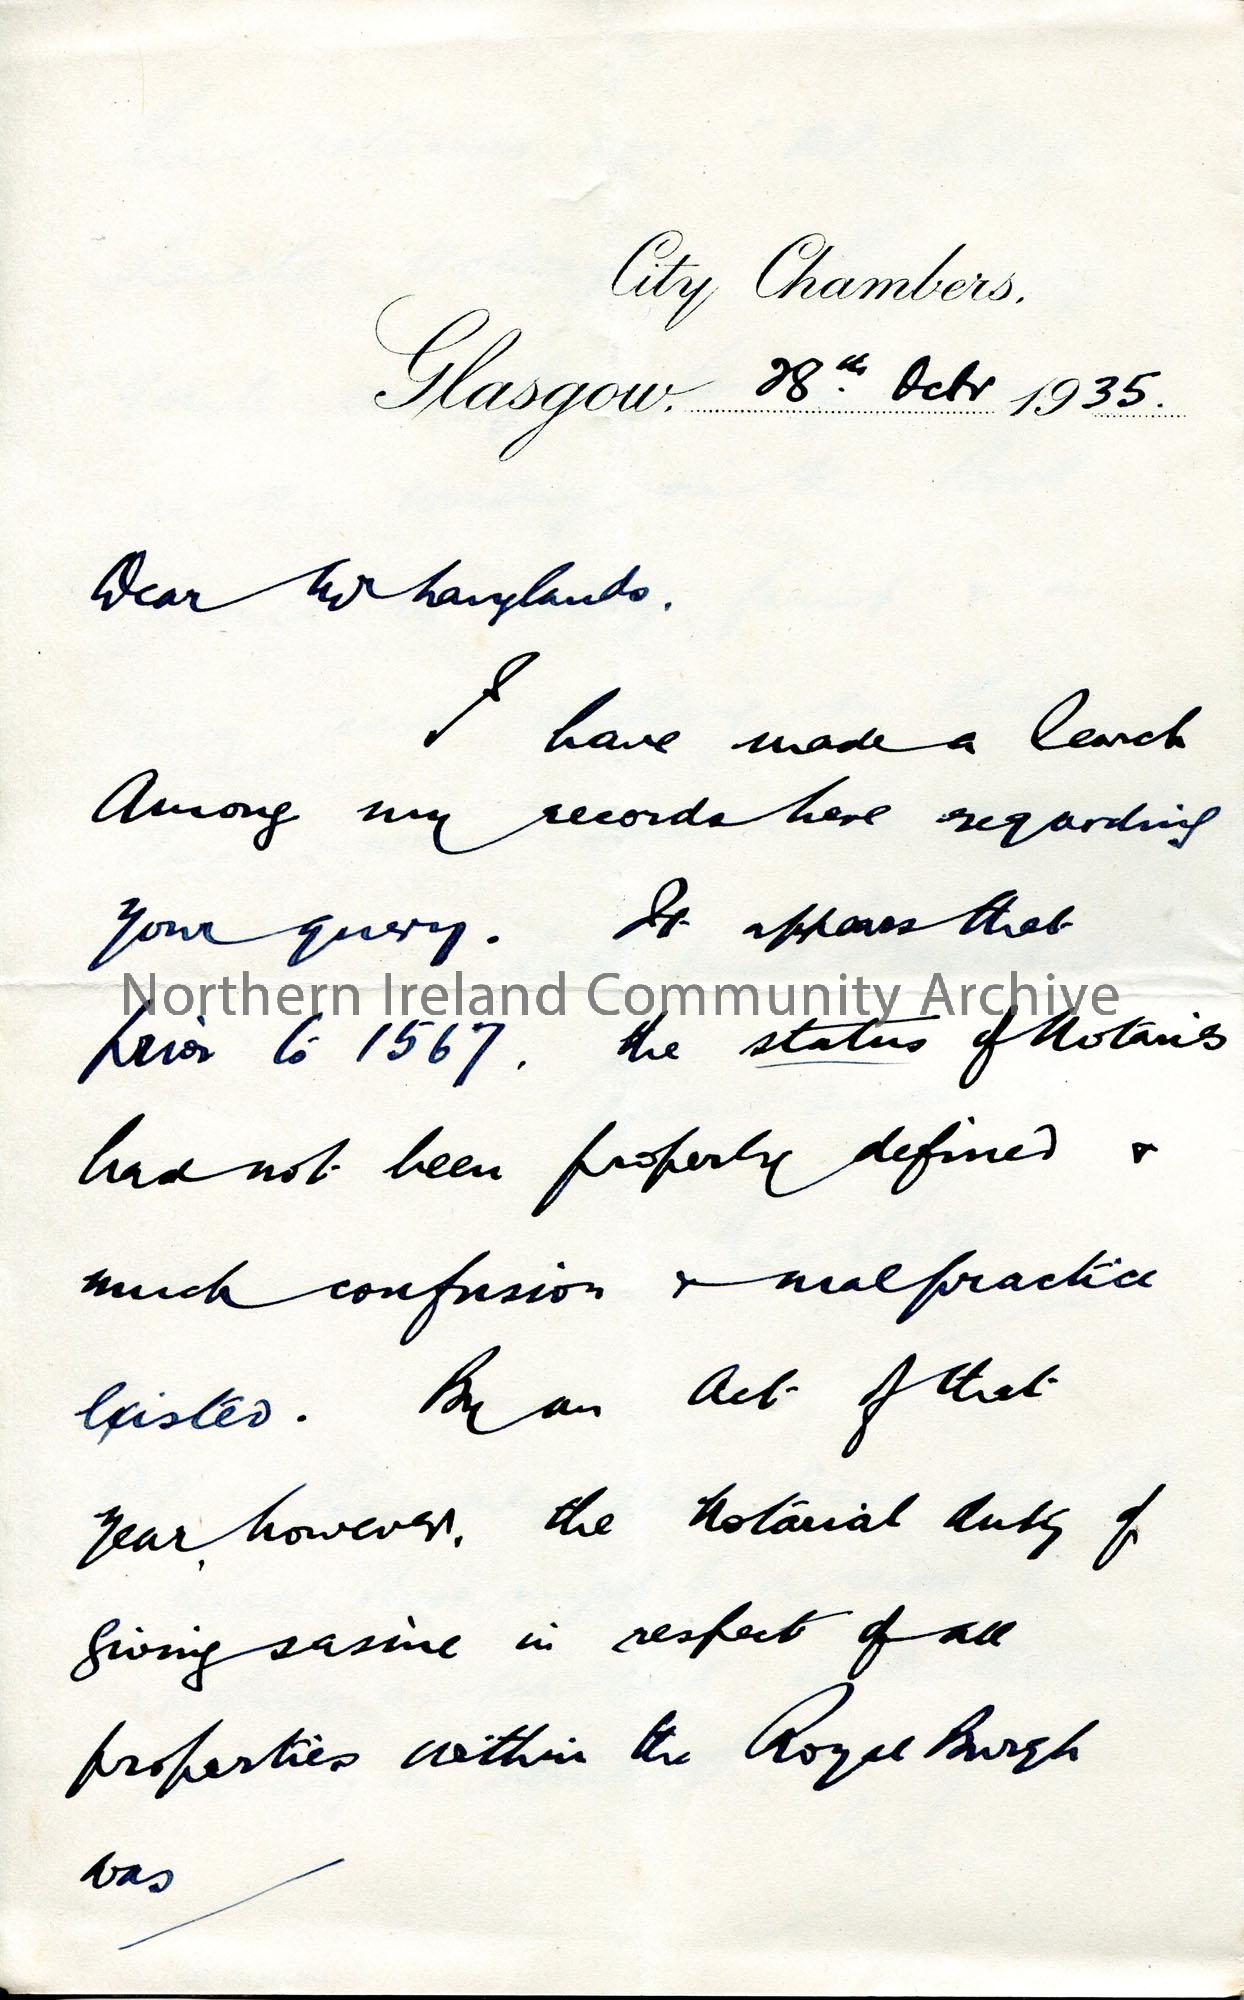 City Chambers.
Glasgow. 28th. Octr 1935.
Dear Mr Langlands.
I have made a search
Among my records here regarding
your query. It appears that
Northern Ireland Community Archive
prior to 1567, the status of Notaries
had not been properly defined &
much confusion & malpractice
existed. By an Act of that
year, however, the Notarial duty of
giving sasine in respect of all
properties within the Royal Burgh
was